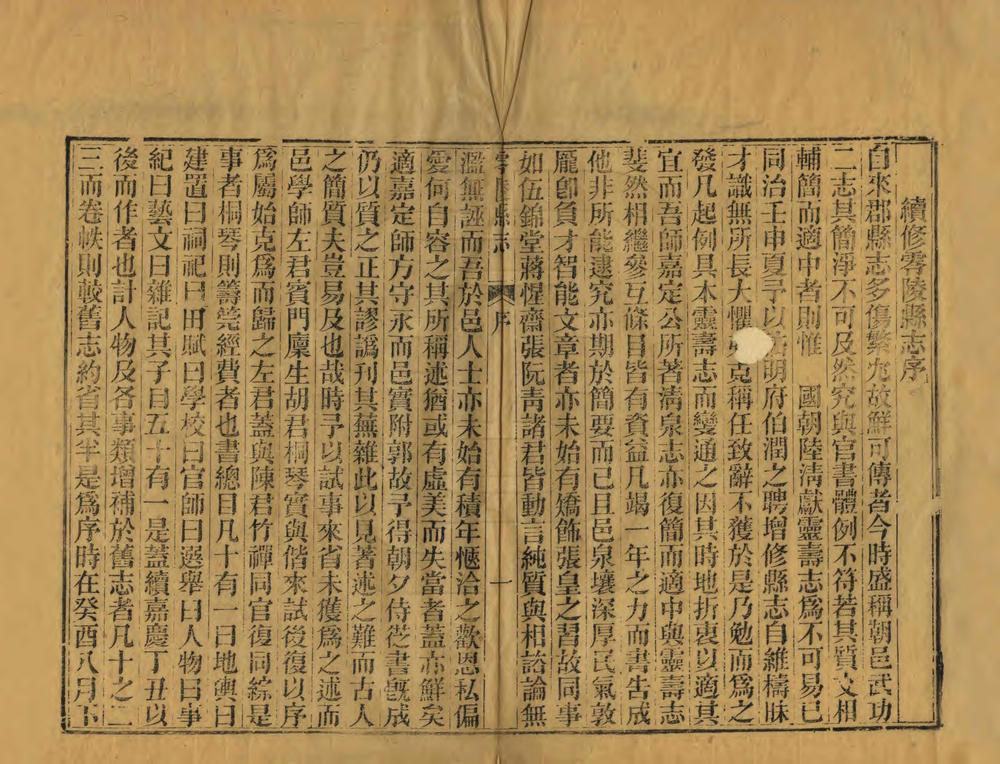 續修零陵縣志序
自來郡縣志多傷繁冗故鮮可傳者今時盛稱朝邑武功
二志其簡淨不可及然究與官書體例不符若其質文相
輔簡而適中者則惟 國朝陸淸獻靈壽志爲不可易已
同治壬申夏予以明府伯潤之聘增修縣志自維檮昧
才識無所長大懼克稱任致辭不獲於是乃勉而爲之
發凡起例具本靈壽志而變通之因其時地折衷以適其
宜而吾師嘉定公所著淸泉志亦復簡而適中與靈壽志
斐然相繼參互條目皆有資益凡竭一年之力而書告成
他非所能逮究亦期於簡要而已且邑泉壤深厚民氣敦
龐卽負才智能文章者亦未始有矯飾張皇之習故同事
如伍錦堂蔣惺齋張阮靑諸君皆動言純質與相諮論無
零陵縣志 序 一
濫無誣而吾於邑人士亦未始有積年愜洽之歡恩私偏
愛何自容之其所稱述猶或有虛美而失當者蓋亦鮮矣
適嘉定師方守永而邑實附郭故予得朝夕侍從書旣成
仍以質之正其謬譌刊其蕪雜此以見著述之難而古人
之簡質夫豈易及也哉時予以試事來省未獲爲之述而
邑學師左君賓門廩生胡君桐琴實與偕來試後復以序
爲屬始克爲而歸之左君蓋與陳君竹禪同官復同綜是
事者桐琴則籌筦經費者也書總目凡十有一曰地輿曰
建置曰祠祀曰田賦曰學校曰官師曰選舉曰人物曰事
紀曰藝文曰雜記其子曰五十有一是蓋續嘉慶丁丑以
後而作者也計人物及各事類增補於舊志者凡十之二
三而卷帙則較舊志約省其半是爲序時在癸酉八月下